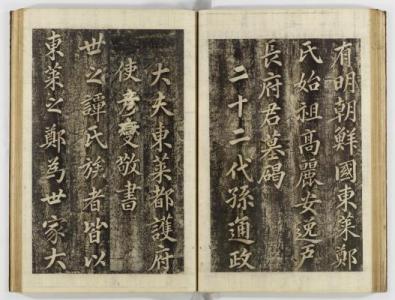 有明朝鮮國東萊鄭
氏始祖高麗安逸戶
長府君墓碣
二十二代孫通政
大夫東萊都護府
使彦燮敬書
世之譚氏族者皆以
東萊之鄭為世家大